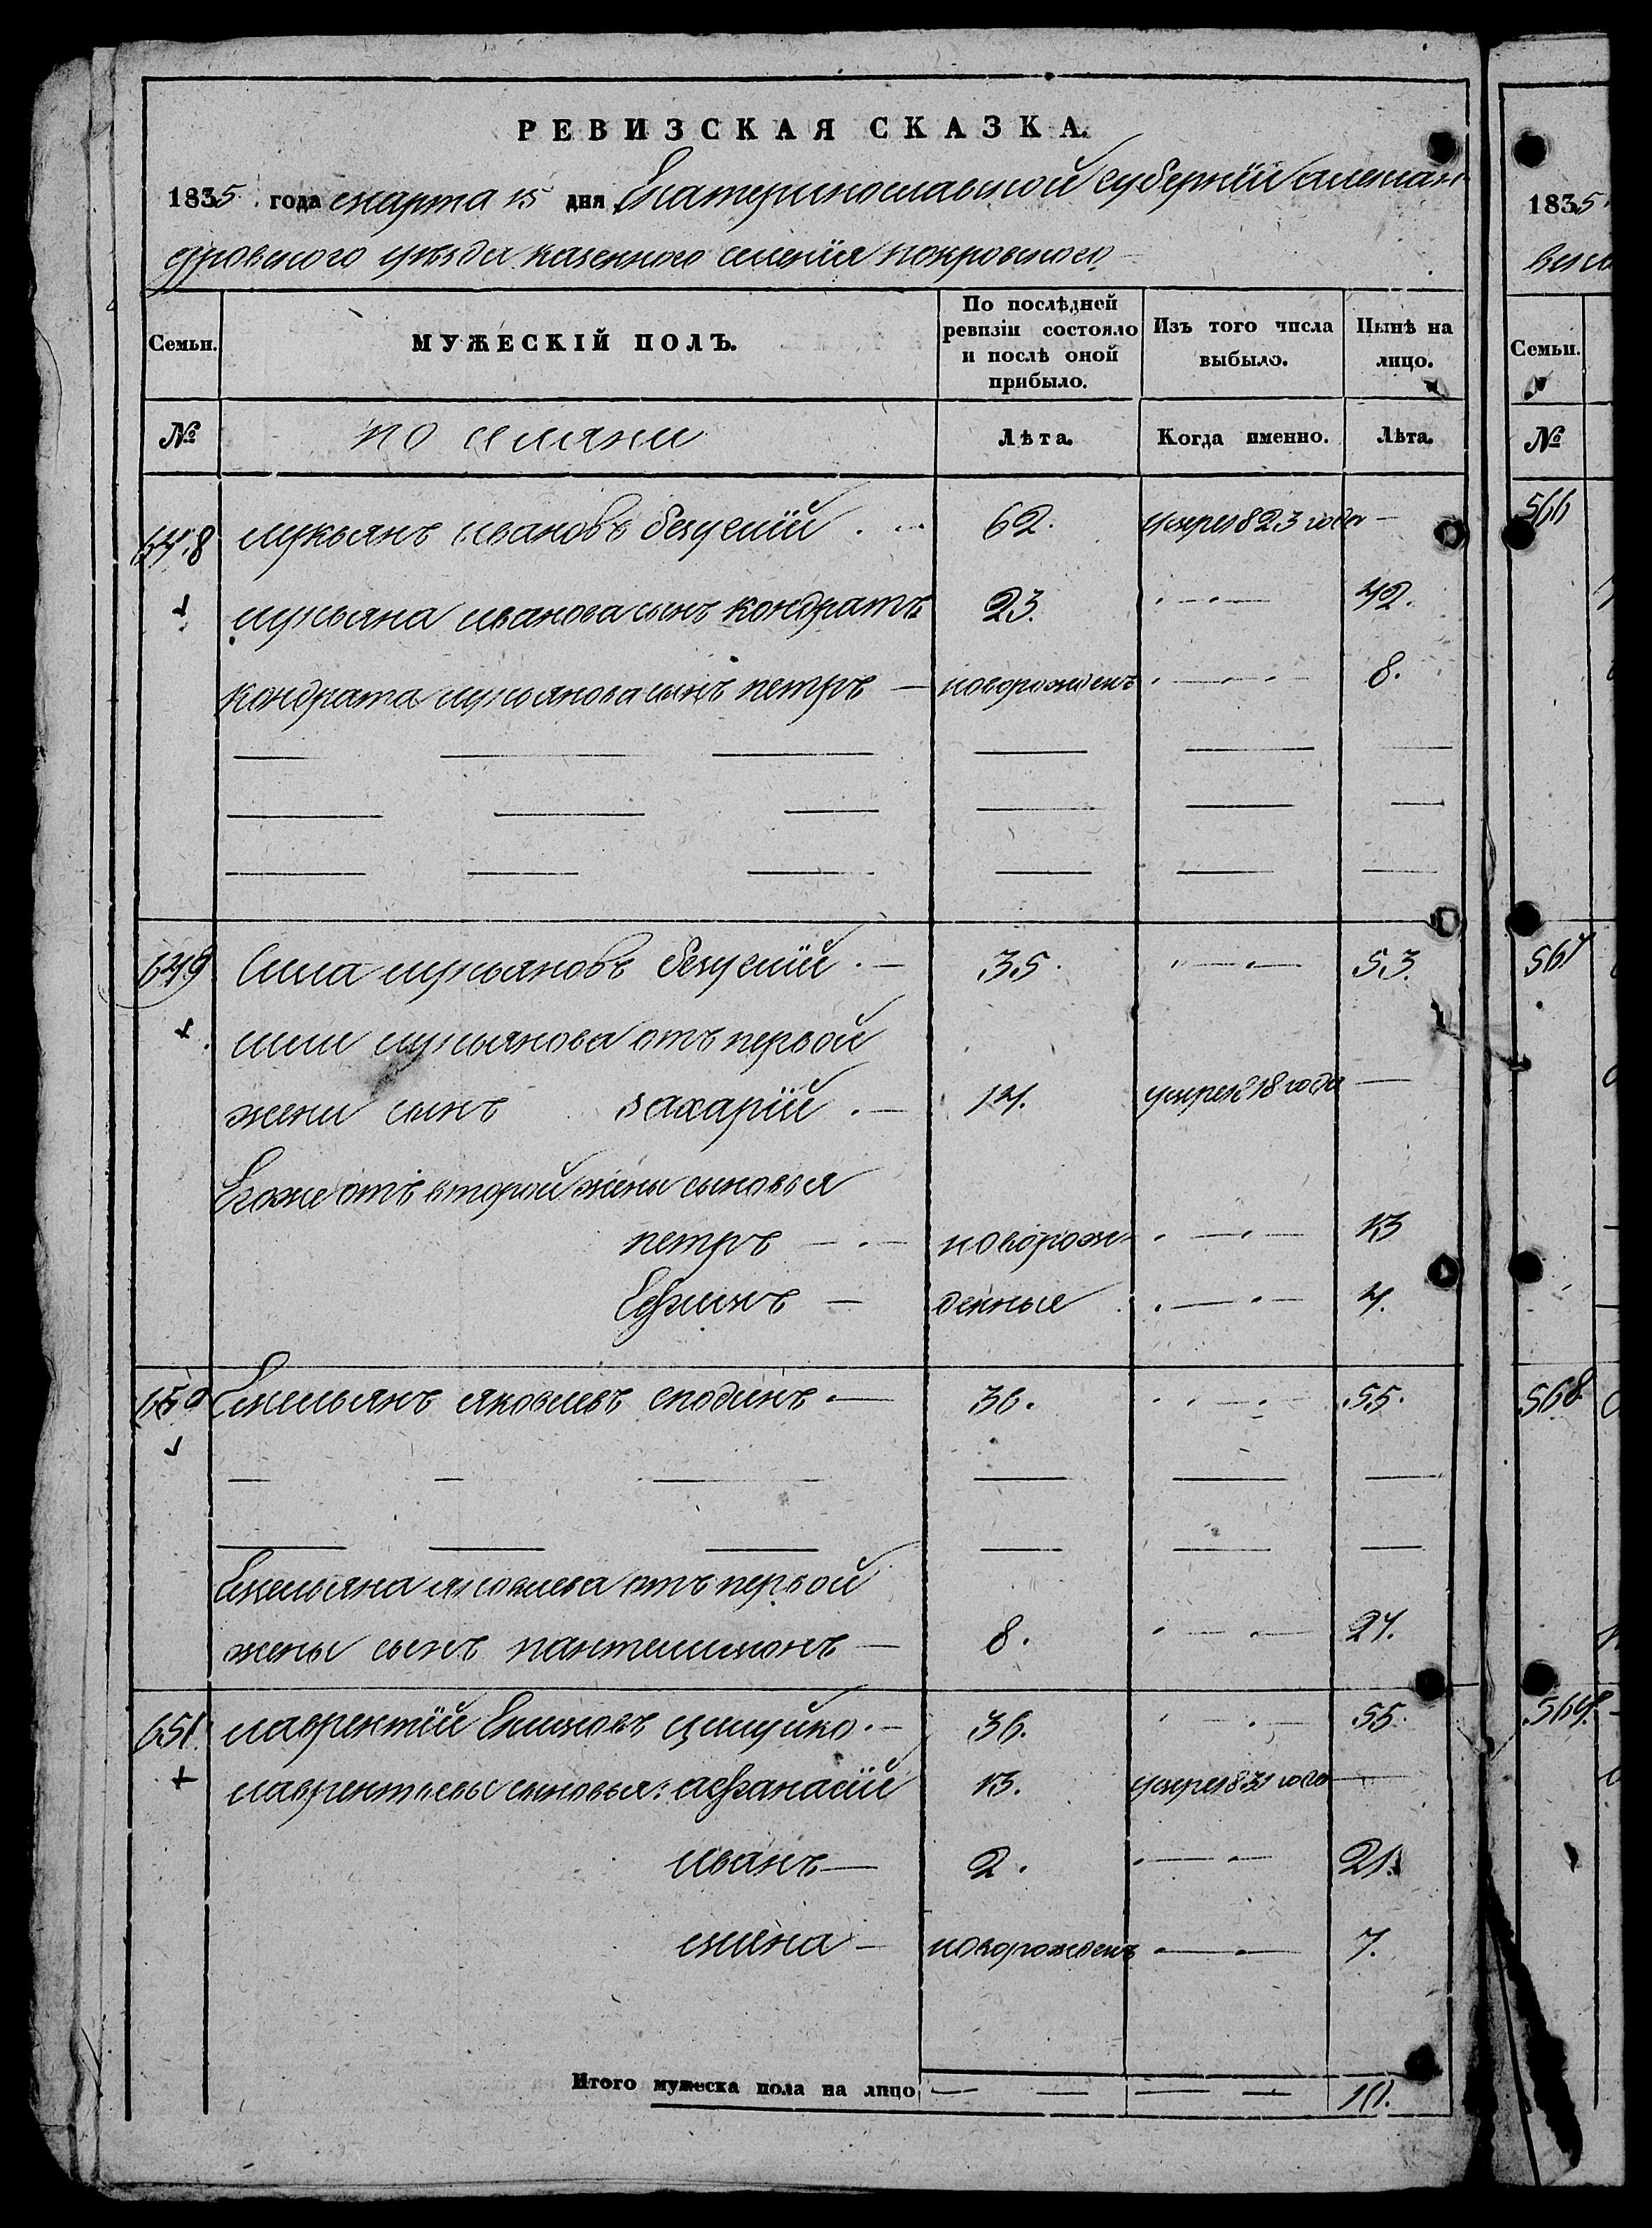 РЕВИЗСКАЯ СКАЗКА.
1835 года марта 15 дня Екатеринославской губернiи александ-
ровского уезда казенного селенiя покровского
Семьи. МУЖЕСКIЙ ПОЛЪ. По послѣдней ревизiи состояло и послѣ оной прибыло. Изъ того числа выбыло. Нынѣ на лицо.
№ поселяни Лѣта. Когда именно. Лѣта.
648 лукьянъ ивановъ безусiй 62. умре 823 года —
лукьяна иванова сынъ кондратъ 23. 42.
кондрата лукьянова сынъ петръ — новорожденъ 8.
649 Сила лукьяновъ безусiй 35. 53.
сили лукьянова отъ первой
жени сынъ захарiй 14. умре 818 года —
Егоже отъ второй жены сыновья
петръ новорож- 13
Ефимъ — денные 4.
650 Емельянъ яковлевъ сподинъ — 36. 55.
Емельяна яковлева отъ первой
жены сынъ пантелимонъ — 8. 27.
651 лаврентiй Екимовъ 36. 55.
лаврентьевы сыновья: афанасiй 13. умре 831 года —
иванъ — 2. 21.
мина — новорожденъ 7.
Итого мужеска пола на лицо 10.
1835
Семьи.
№
566
567
568
569